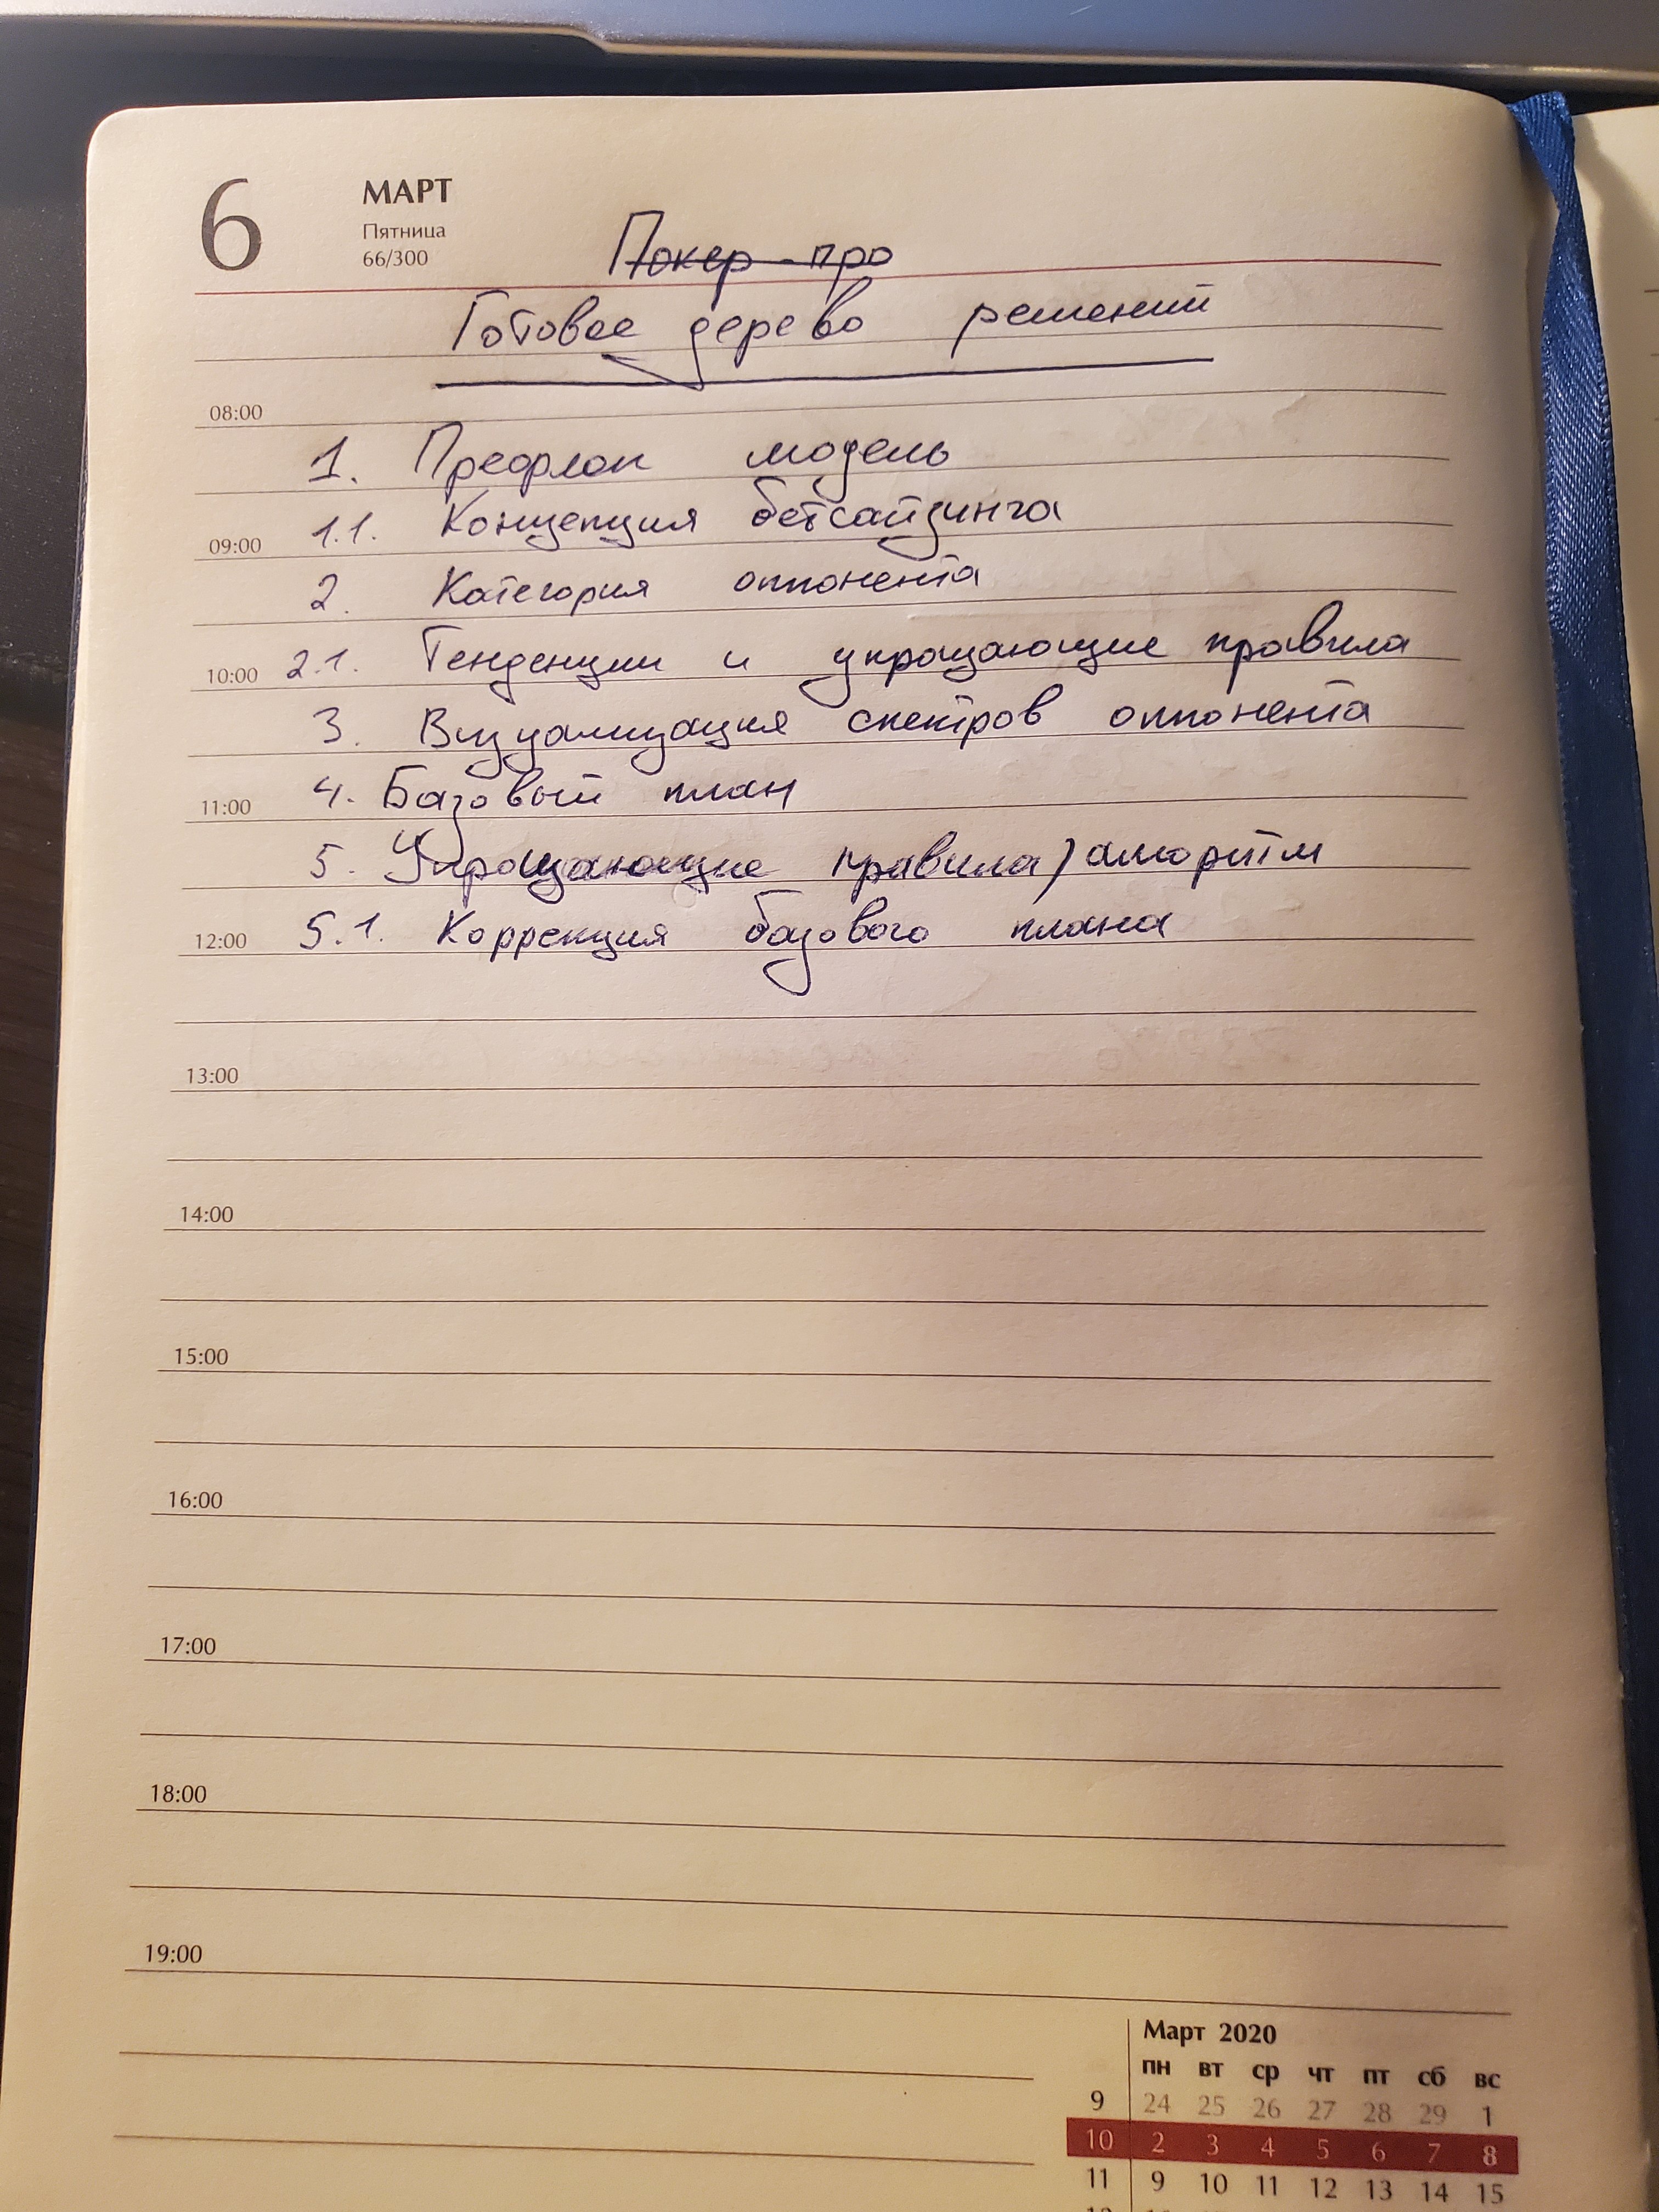 6 МАРТ
Пятница
66/300
Покер-про
Готовое дерево решений
08:00
1. Префлоп модель
1.1. Концепция бетсайзинга
09:00
2. Категория оппонента
2.1. Тенденции и упрощающие правила
10:00
3. Визуализация спектров оппонента
4. Базовый план
11:00
5. Упрощающие правила/алгоритм
5.1. Коррекция базового плана
12:00
13:00
14:00
15:00
16:00
17:00
18:00
19:00
Март 2020
пн вт ср чт пт сб вс
9 24 25 26 27 28 29 1
10 2 3 4 5 6 7 8
11 9 10 11 12 13 14 15